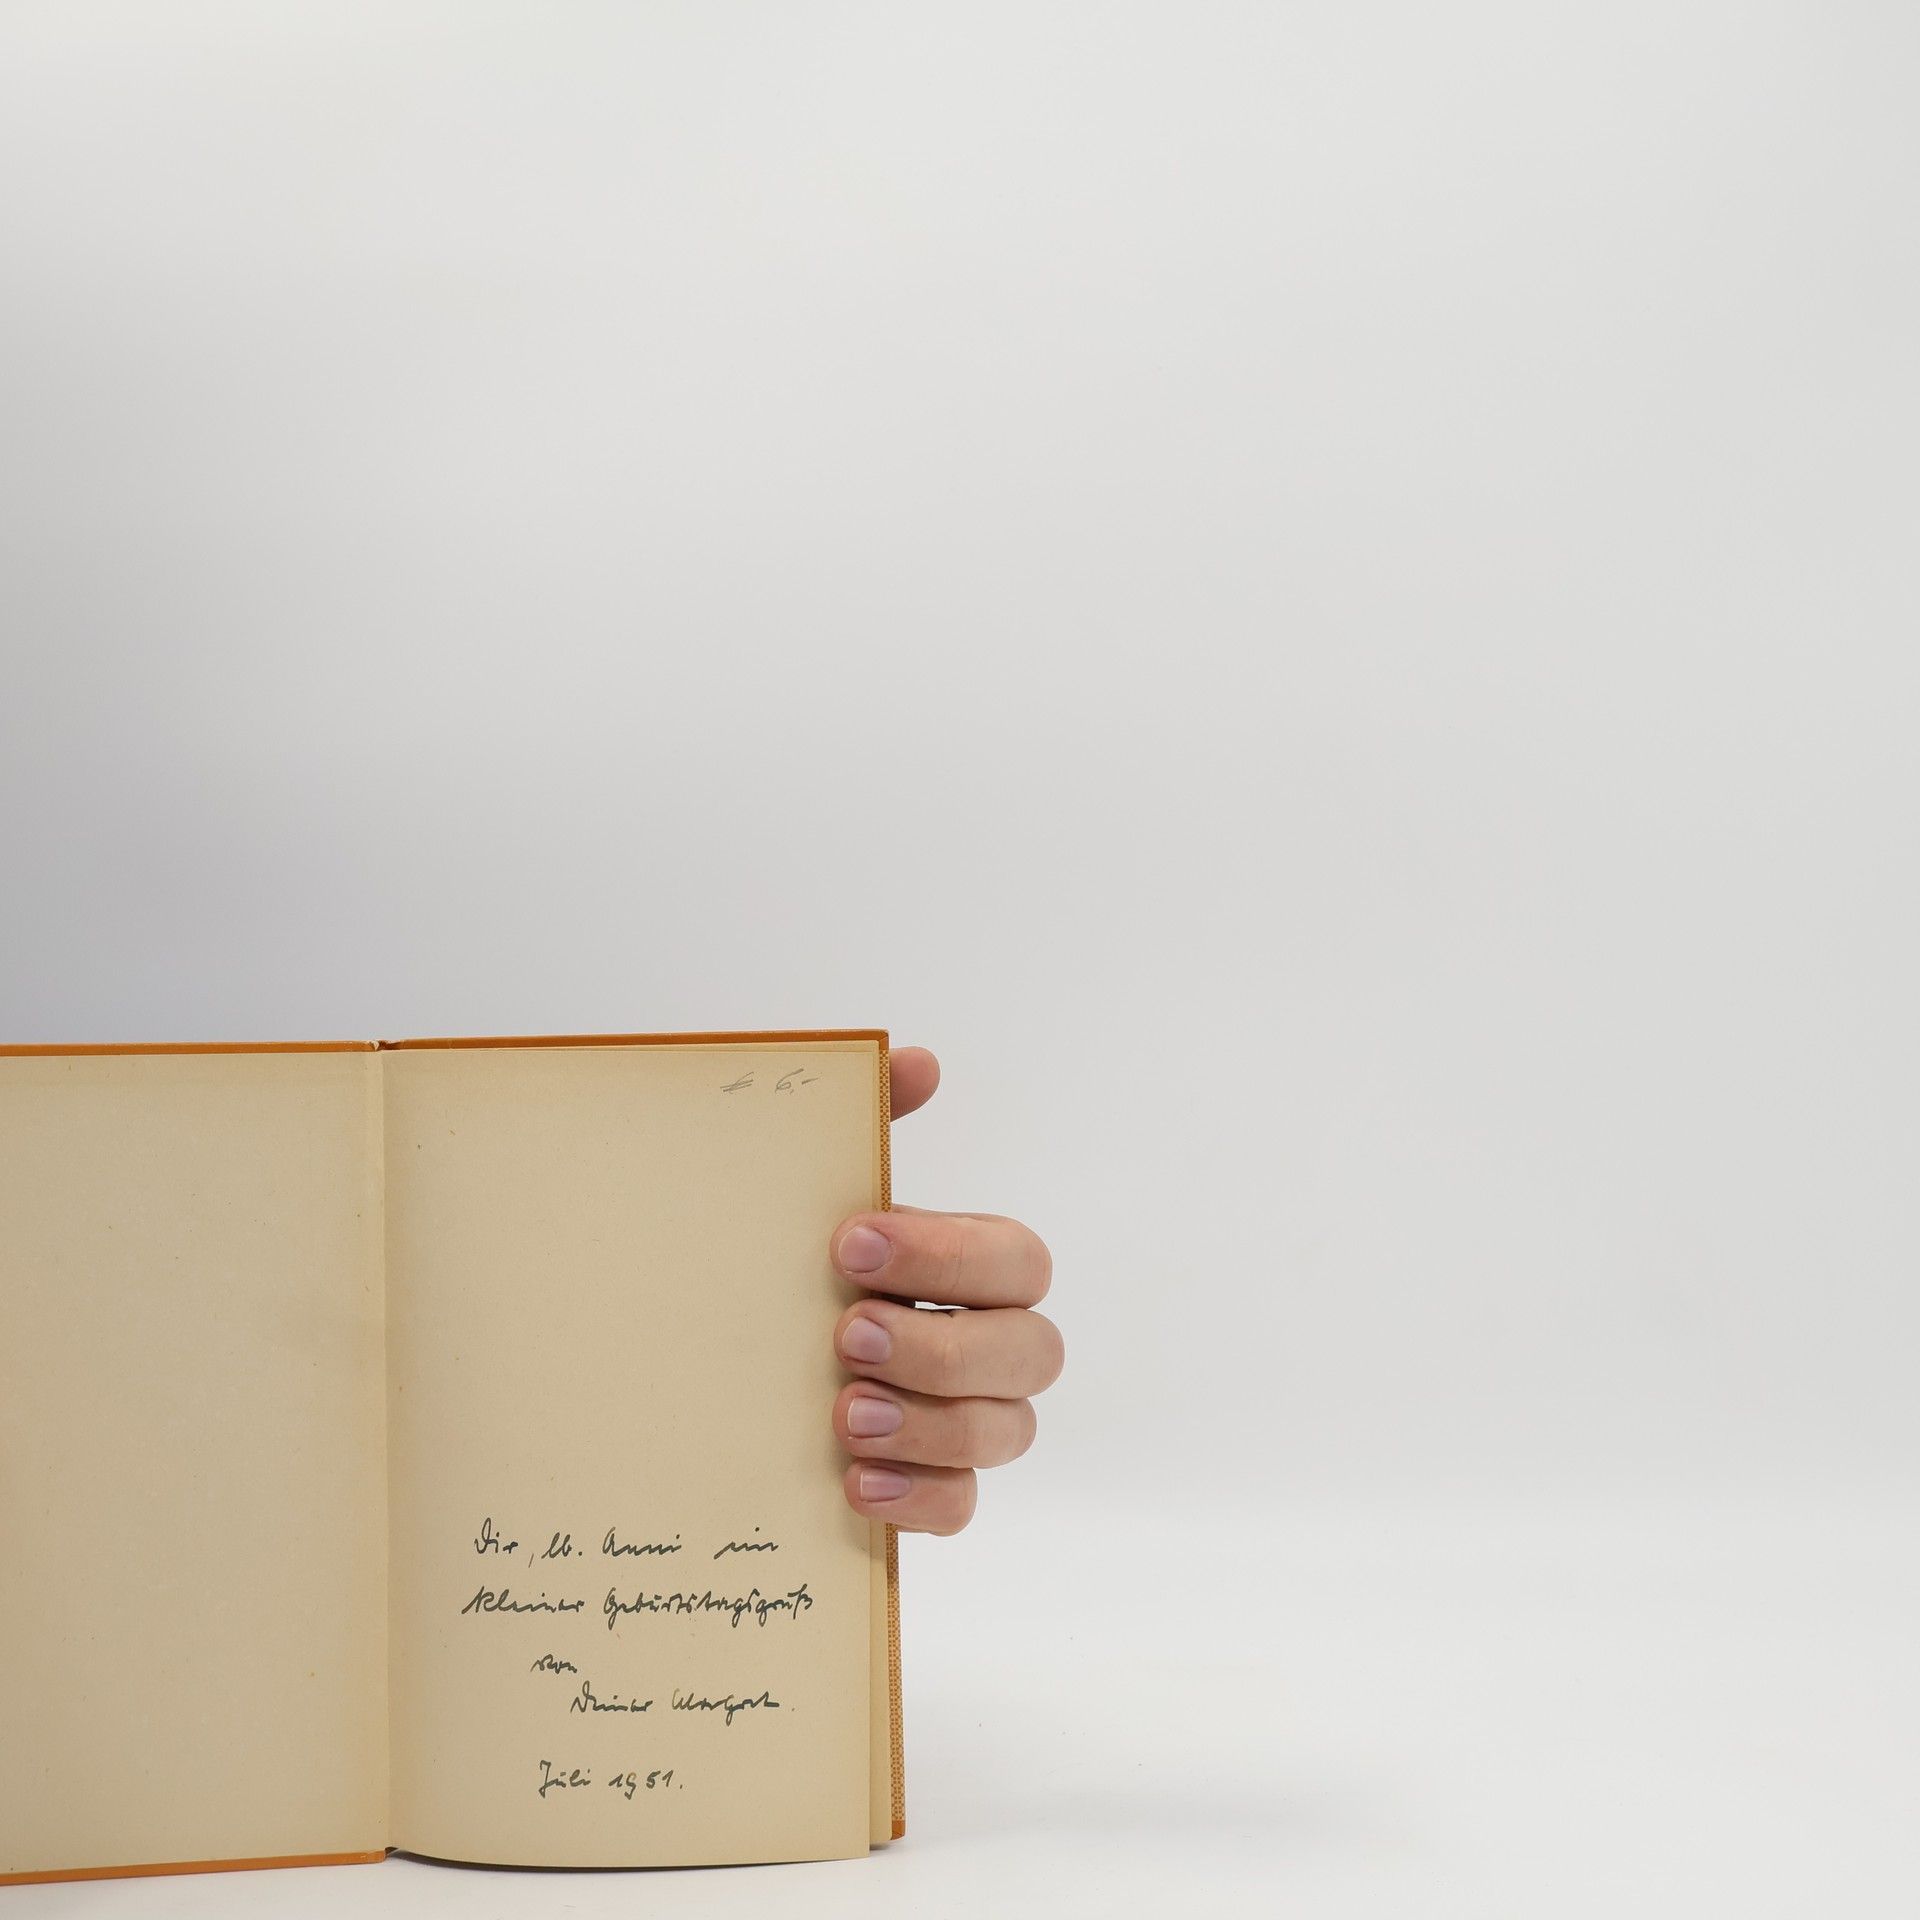 € 6.-
Dir, lb. Anni ein
kleiner Geburtstagsgruß
von
Deiner Margret.
Juli 1951.